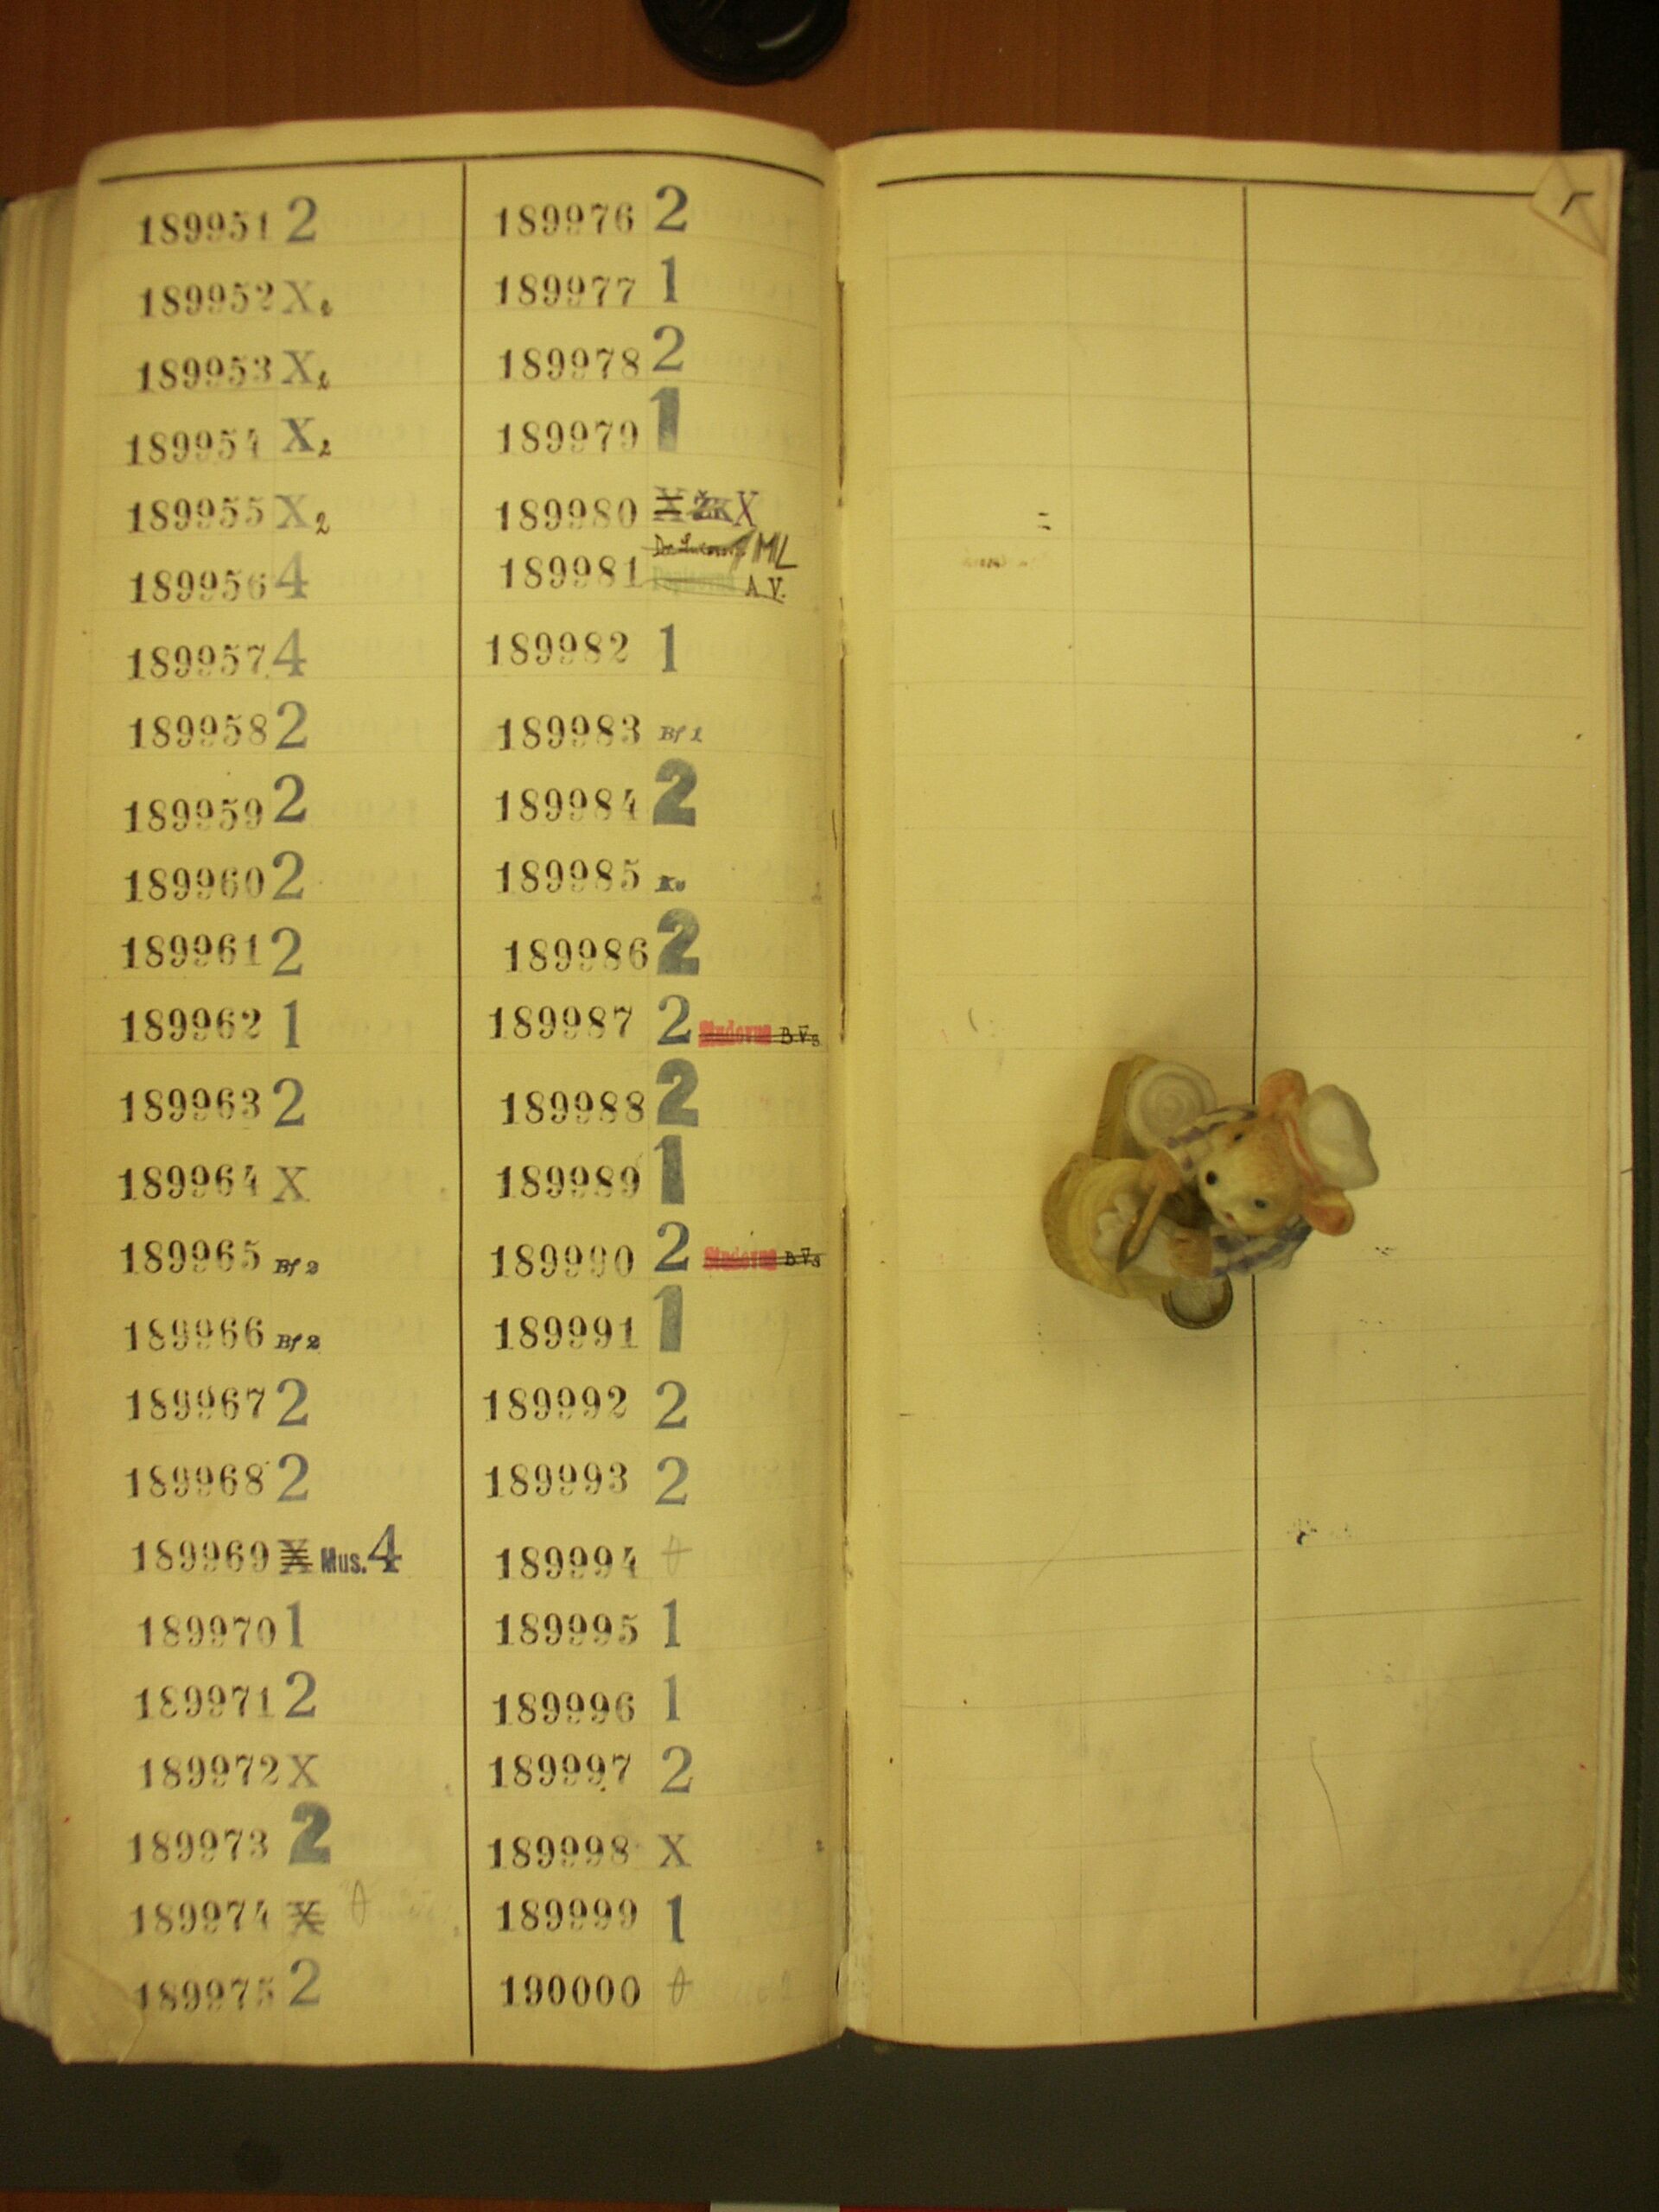 189951 2
189952 X
189953 X2
189954 X2
189955 X2
189956 4
189957 4
189958 2
189959 2
189960 2
189961 2
189962 1
189963 2
189964 X
189965 Bf 2
189966 Bf 2
189967 2
189968 2
189969 X Mus. 4
189970 1
189971 2
189972 X
189973 2
189974 X
189975 2
189976 2
189977 1
189978 2
189979 1
189980 X ŽK X
ML
189981 A.V.
189982 1
189983 Bf 1
189984 2
189985
189986 2
189987 2 B.V.
189988 2
189989 1
189990 2 B.V.
189991 1
189992 2
189993 2
189994
189995 1
189996 1
189997 2
189998 X
189999 1
190000